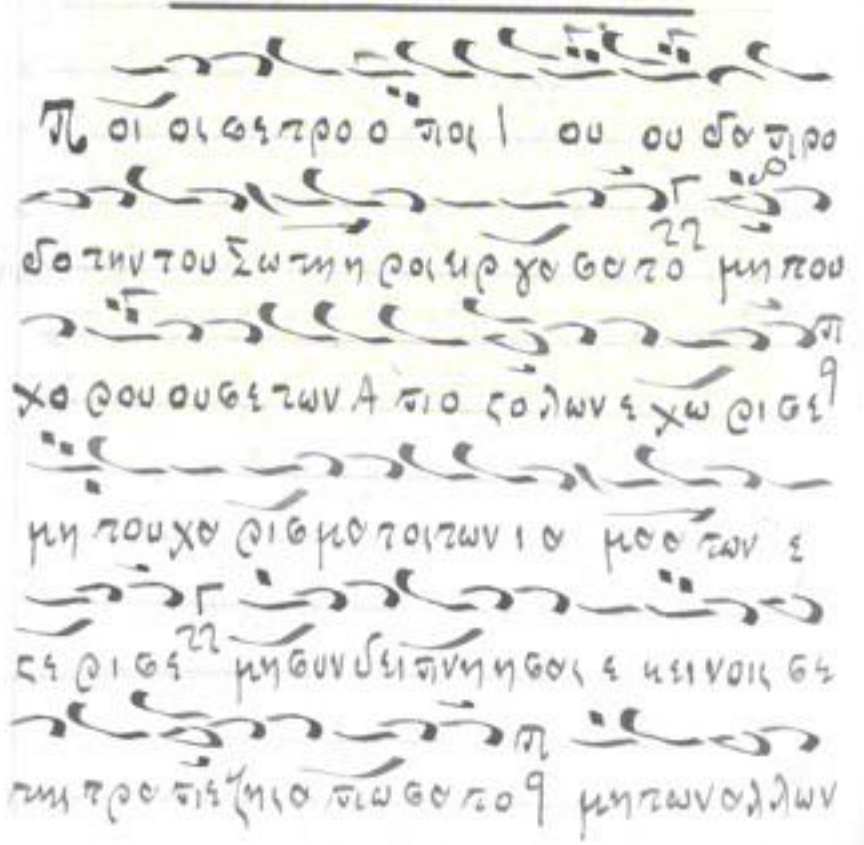 Ποι οι σε τρο ο πος Ι ου ου δα προ
δο την του Σω τη η ρος ειρ γα σα το μη του
χο ρου ου σε των Α πο στο λων ε χω ρι σε
μη του χα ρι σμα τος των ι α μα α των ε
στε ρι σε μη συν δει πνη η σας ε κει νοις σε
της τρα πε ζης α πω σα το μη των αλ λων